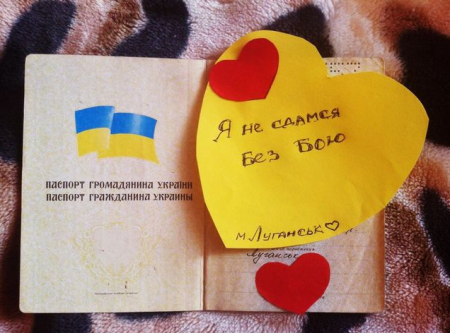 ПАСПОРТ ГРОМАДЯНИНА УКРАЇНИ
ПАСПОРТ ГРАЖДАНИНА УКРАИНЫ
Я не сдамся
Без Бою
м. Луганськ
Луганськ